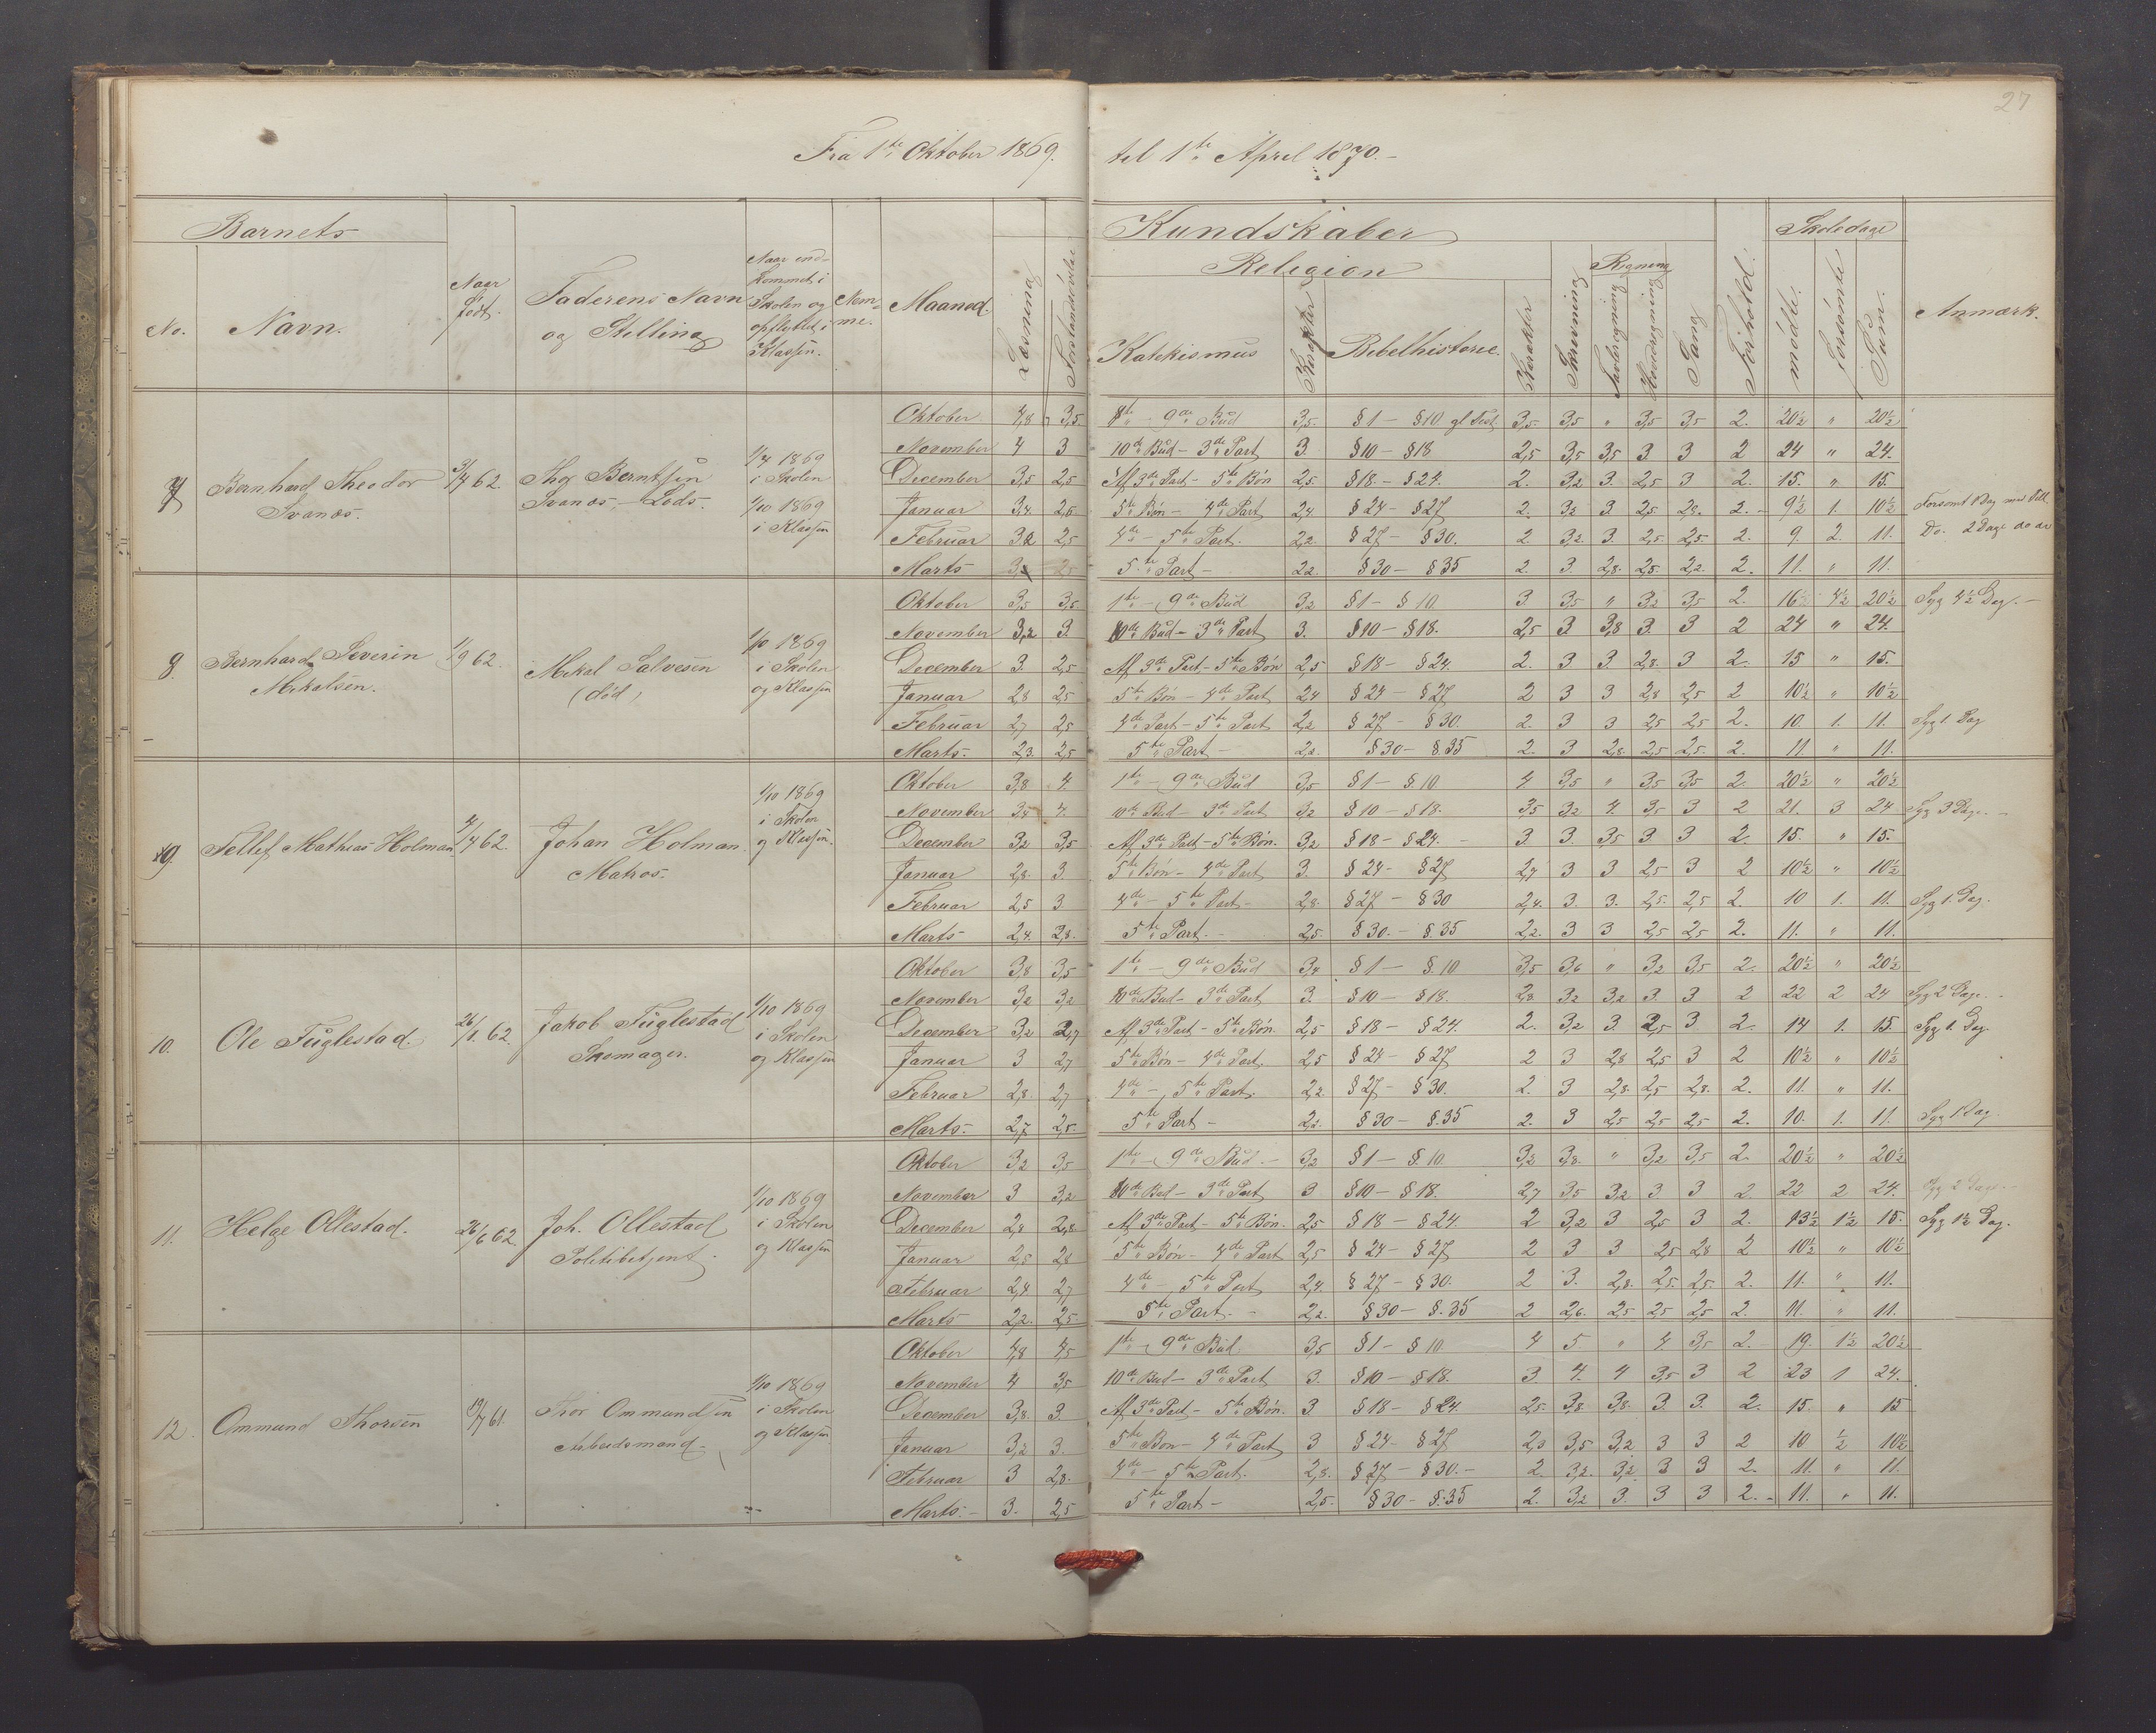 27
Fra 1ste Oktober 1869. til 1ste April 1870.
Barnets Kundskaber Skoledage
Religion Regning
No. Navn. Naar født. Faderens Navn og Stilling Naar ind-kommet i Skolen og opflyttet i Klassen. Nem-me. Maaned. Læsning Forstandsøvelse Katekismus Karakter Bibelhistorie. Karakter Skrivning Tavleregning Hovedregning Sang Forhold. mødte. forsømte Sum. Anmærk.
7 Bernhard Theodor Svanæs. 3/4 62. Thor Berntsen Svanæs, Lods. 1/4 1869 i Skolen 1/10 1869 i Klassen
Oktober 4,8 3,5. 8de - 9de Bud 3,5. §1 - §10. gl Test. 3,5. 3,5 " 3,5 3,5 2. 20½ " 20½
November 4 3 10de Bud - 3de Part 3. §10 - §18 2,5 3,5 3,5 3. 3 2 24 " 24.
December 3,5 2,5 Af 3de Part - 5te Bøn 2,5. §18. - §24. 2. 3,2 3. 2,5 3 2. 15. " 15.
Januar 3,4. 2,6 5te Bøn - 4de Part 2,4 §24 - §27 2. 3,2 3 2,5. 2,8. 2. 9½ 1. 10½ Forsømt 1 Dag med Till.
Februar 3,2 2,5 4de - 5te Part. 2,2. §27 - §30. 2. 3,2. 3. 2,5. 2,5. 2. 9. 2. 11. Do. 2 Dage do do
Marts 5te Part - 2,2. §30 - §35 2. 3. 2,8. 2,5. 2,2. 2. 11. " 11.
8. Bernhard Severin Mikalsen. 1/9 62. Mikal Salvesen (død) 1/10 1869 i Skolen og Klassen
Oktober 3,5 3,5. 1ste - 9de Bud 3,2 §1 - §10. 3 3,5 " 3,2 3,5 2. 16 4½ 20½ Syg 4½ Dag. -
November 3,2 3. 10de Bud - 3de Part 3. §10 - §18. 2,5 3 3,8 3. 3 2 24 " 24.
December 3. 2,5 Af 3de Part - 5te Bøn 2,5 §18 - §24. 2. 3 3. 2,8. 3 2. 15 " 15.
Januar 2,8 2,5 5te Bøn - 4de Part 2,4 §24 - §27 2 3 3 2,8 2,5 2 10½ " 10½
Februar 2,7 2,5 4de Part - 5te Part 2,2 §27 - §30. 2. 3 3 2,5 2,5 2. 10. 1. 11. Syg 1. Dag
Marts. 2,3. 2,5 5te Part - 2,2. §30 - §35 2. 3 2,8. 2,5 2,5. 2. 11. " 11.
9. Tellef Mathias Holman 4/4 62. Johan Holman. Matros. 1/10 1869 i Skolen og Klassen.
Oktober 3,8 4. 1ste - 9de Bud 3,5 §1 - §10 4 3,5 " 3,5 3,5 2. 20½ " 20½
November 3,4 4. 10de Bud - 3de Part 3,2 §10 - §18. 3,5 3,2 4. 3,5 3 2 21. 3 24 Syg 3 Dage. -
December 3,2 3,5 Af 3de Part - 5te Bøn. 3,2 §18 - §24. - 3. 3. 3,5 3 3 2. 15. " 15.
Januar 2,8. 3. 5te Bøn - 4de Part 3. §24 - §27 2,7 3 3 2,5 3 2 10½ " 10½
Februar 2,5 3 4de - 5te Part - 2,8. §27 - §30 2,4. 3. 3. 2,5. 2,5 2. 10 1. 11. Syg 1. Dag.
Marts 2,4. 2,8. 5te Part. - 2,5. §30. - §35 2,2. 3 3 2,5 2,5 2. 11. " 11.
10. Ole Fuglestad. 26/1. 62. Jakob Fuglestad Skomager. 1/10 1869 i Skolen og Klassen
Oktober 3,8 3,5 1ste - 9de Bud 3,4 §1 - §10 3,5 3,6 " 3,2 3,5 2. 20½ " 20½
November 3,2 3,2 10de Bud - 3de Part 3. §10 - §18. 2,8 3,2 3,2 3. 3 2 22 2 24 Syg 2 Dage. -
December 3,2 2,7 Af 3de Part - 5te Bøn. 2,5 §18 - §24. 2. 3,2 3. 2,5 3 2. 14 1. 15. Syg 1. Dag.
Januar 3 2,7 5te Bøn - 4de Part. 2,5 §24 - §27 2 3 2,8 2,5 3 2 10½ " 10½
Februar 2,8. 2,7 4de - 5te Part. 2,2 §27 - §30. 2. 3 2,8. 2,5 2,8. 2. 11. " 11.
Marts. 2,7 2,5. 5te Part - 2,2. §30 - §35 2. 3 2,5 2,5 2,5 2. 10. 1. 11. Syg 1 Dag.
11. Helge Ollestad. 26/6 62. Joh. Ollestad Politibetjent. 1/10 1869 i Skolen og Klassen
Oktober 3,2 3,5 1ste - 9de Bud. - 3,2 §1 - §10. 3,2 3,8. " 3,2 3,5 2. 20½ " 20½
November 3 3,2 10de Bud - 3de Part 3 §10 - §18. 2,7 3,5 3,2 3. 3 2. 22 2 24. Syg 2 Dage. -
December 2,8 2,8 Af 3de Part - 5te Bøn. 2,5 §18 - §24. 2 3,2 3 2,5 3 2. 13½ 1½ 15. Syg 1½ Dag.
Januar 2,5 2,8 5te Bøn - 4de Part 2,5 §24 - §27 2 3 3 2,5 2,8 2 10½ " 10½
Februar 2,4 2,7 4de - 5te Part 2,4. §27 - §30. 2 3. 2,8. 2,5. 2,5. 2. 11. " 11.
Marts 2,2. 2,5. 5te Part. - 2,2. §30 - §35 2 2,6. 2,5 2,5 2,5 2. 11. " 11.
12. Ommund Thorsen 19/7 61. Thor Ommundsen Arbeidsmand. 1/10 1869 i Skolen og Klassen
Oktober 4,8 4,5 1ste - 9de Bud. 3,5 §1 - §10. 4 5. " 4. 3,5 2. 19. 1½ 20½
November 4 3,5 10de Bud - 3de Part 3. §10 - §18. 3 4. 4 3,5 3 2 23 1 24.
December 3,8. 3. Af 3de Part - 5te Bøn. 3 §18 - §24. 2,5. 3,8. 3,8. 3. 3. 2. 15. " 15
Januar 3,2 3. 5te Bøn - 4de Part 3 §24 - §27 2,3 3,5 3,2 3 3 2 10 ½ 10½
Februar 3 2,8. 4de - 5te Part. 2,8. §27 - §30. - 2. 3,2. 3,2. 3 3 2. 11. " 11.
Marts. - 3. 2,5 5te Part - 2,5. §30 - §35 2. 3,2 3. 3 3 2. - 11. " 11.